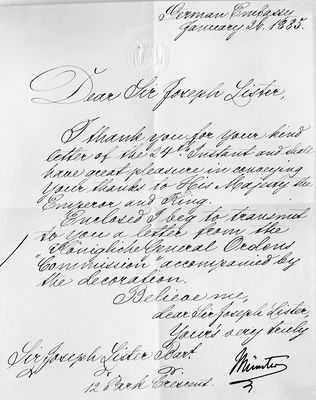 German Embassy
January 26. 1885.
Dear Sir Joseph Lister,
I thank you for your kind
letter of the 24th Instant and shall
have great pleasure in conveying
your thanks to His Majesty the
Emperor and King.
Enclosed I beg to transmit
to you a letter from the
"Königliche General Ordens
Commission" accompanied by
the decoration.
Believe me,
dear Sir Joseph Lister,
Yours very truly
Münster
Sir Joseph Lister Bart
12 Park Crescent.